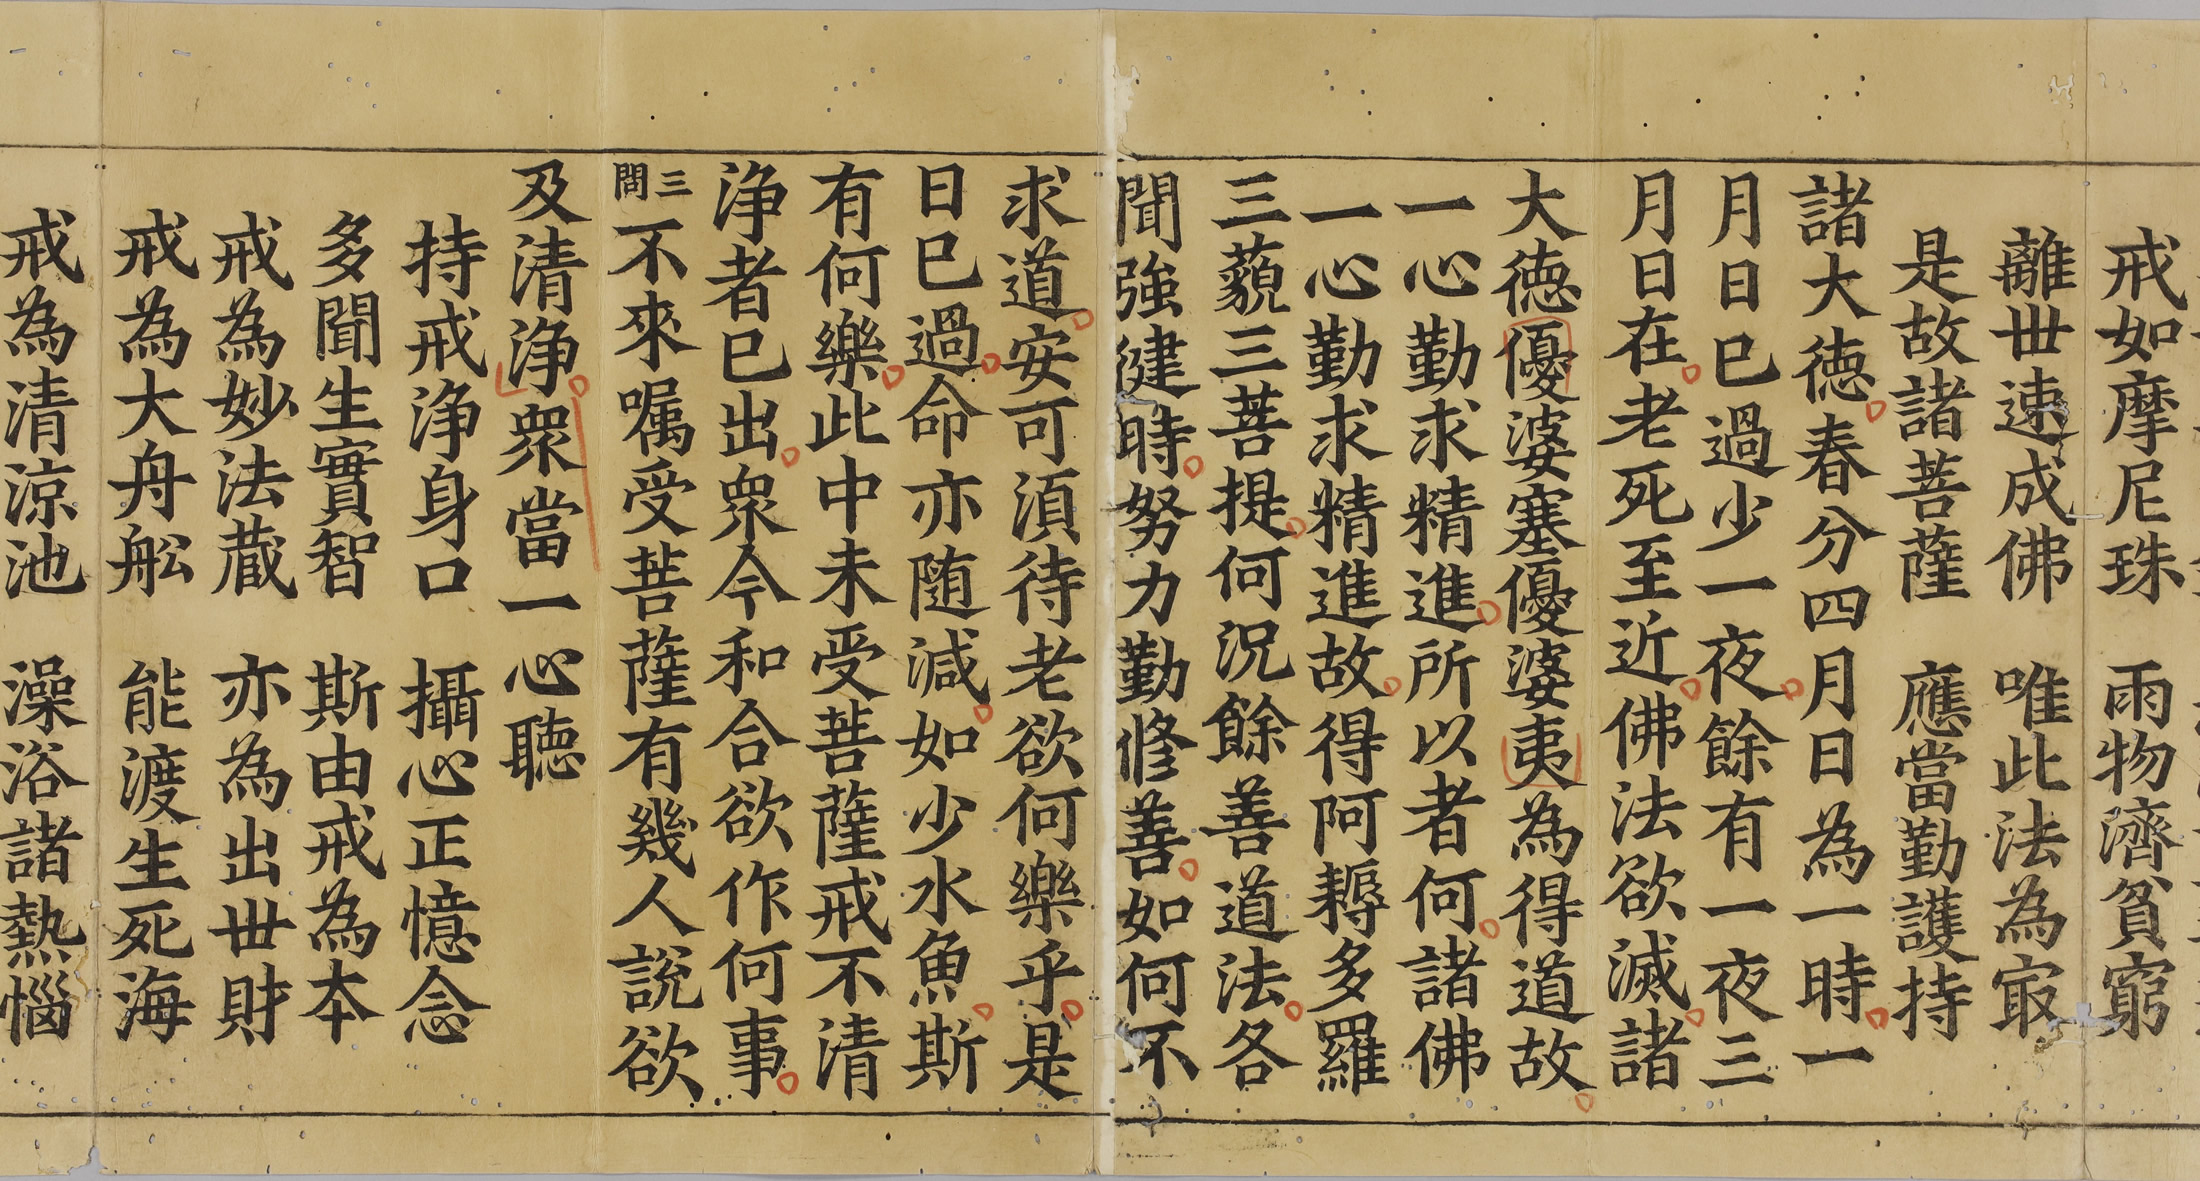 戒如摩尼珠 雨物濟貧窮
離世速成佛 唯此法為㝡
是故諸菩薩 應當勤護持
諸大徳春分四月日為一時一
月日已過少一夜餘有一夜三
月日在老死至近佛法欲滅諸
大徳優婆塞優婆夷為得道故
一心勤求精進所以者何諸佛
一心勤求精進故得阿耨多羅
三藐三菩提何況餘善道法各
聞強健時努力勤修善如何不
求道安可湏待老欲何樂乎是
日已過命亦随減如少水魚斯
有何樂此中未受菩薩戒不清
浄者已出衆今和合欲作何事
三問不來嘱受菩薩有幾人說欲
及清浄衆當一心聽
持戒浄身口 攝心正憶念
多聞生實智 斯由戒為本
戒為妙法蔵 亦為出世財
戒為大舟舩 能渡生死海
戒為清涼池 澡浴諸熱惱